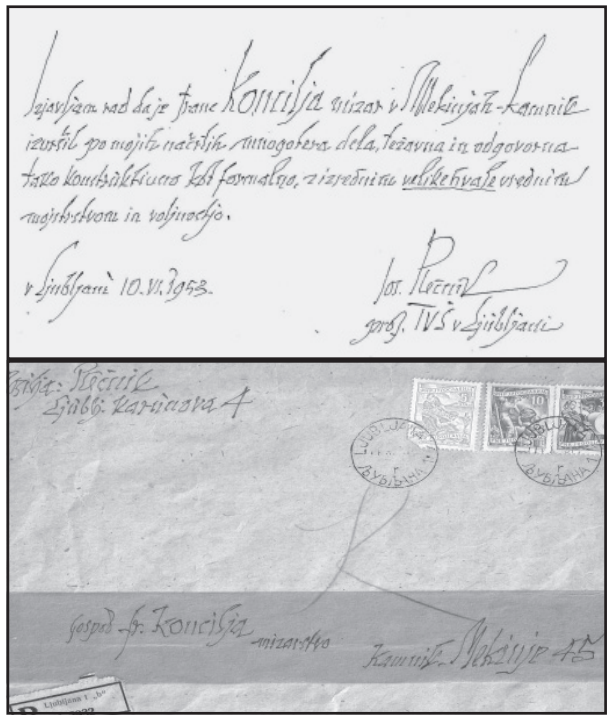 Izjavljam rad da je Franc Koncilja mizar v Mekinjah-Kamnik
izvršil po mojih načrtih mnogotera dela, težavna in odgovorna
tako konstruktivno kot formalno, z izrednim velike hvale vrednim
mojstrstvom in voljnostjo.
v Ljubljani 10.VI.1953.
Jos. Plečnik
prof. TVŠ v Ljubljani
Plečnik
Ljublj. Karunova 4
LJUBLJANA 1
ЉУБЉАНА 1
г
10
LJUBLJANA
ЉУБЉАНА 1
г
gospod fr. Koncilja
mizarstvo
Kamnik-Mekinje 45
R
Ljubljana 1 „b"